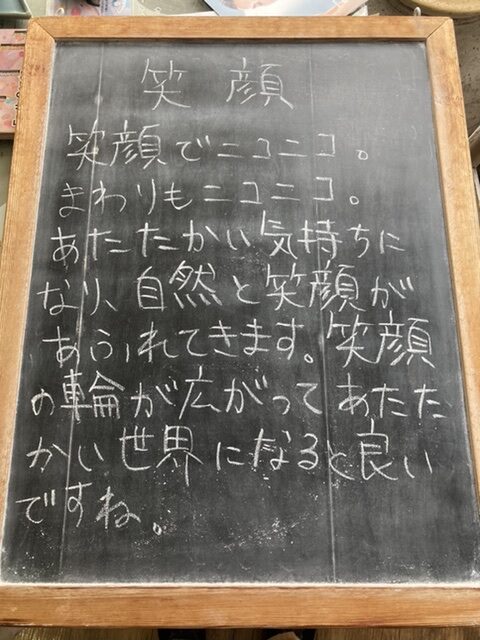 笑顔
笑顔でニコニコ。
まわりもニコニコ。
あたたかい気持ちに
なり、自然と笑顔が
あふれてきます。笑顔
の輪が広がってあたた
かい世界になると良い
ですね。